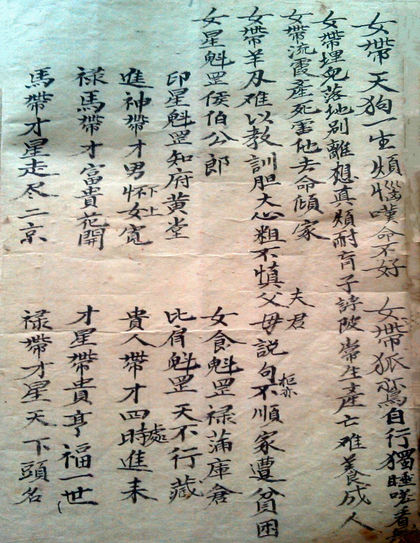 女帶天狗一生煩惱嘆命不好 女帶狐鸞自行獨睡嗟看
女帶埋兒落地別離想真煩耐育子 當生產亡难養成人
女帶流霞產死害他去命傾家
女帶羊刃难以教訓胆大心粗不慎父母説句不順家遭貧困
夫君
女星魁罡侯伯公郎 女食魁罡禄蒲庫倉
印星魁罡知府黄堂 比肩魁罡天不行藏
進神帶才男怀女寬 貴人帶才四時進来
下上 處
禄馬帶才富貴花開 才星帶貴享福一世
馬帶才星走尽二京 禄帶才星天下頭名